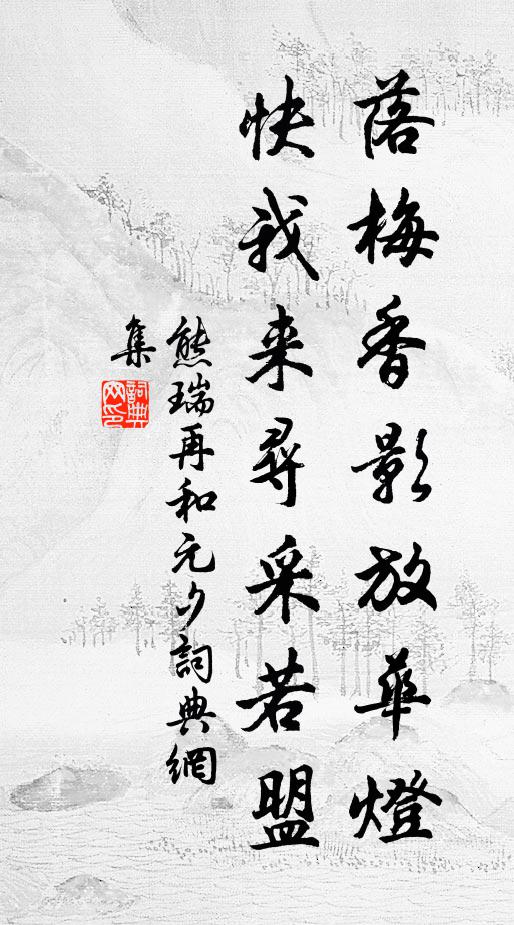 落梅香影放華燈
快我来尋采若盟
熊瑞再和元夕詞典網
集
詞典
网印